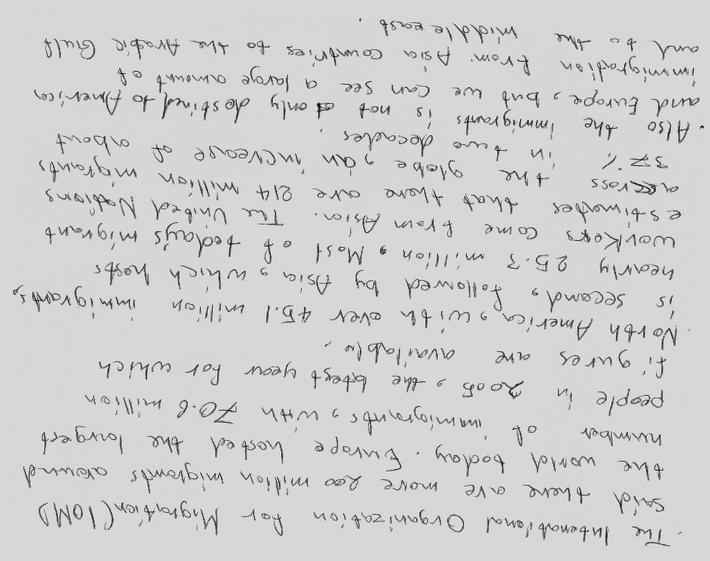 . The Intenational Organization for Migration (IOM)
said there are more 200 million migrants around
the world today. Europe hosted the largest
number of immigrants, with 70.6 million
people in 2005, the latest year for which
figures are available.
. North America, with over 45.1 million immigrants,
is second, followed by Asia, which hosts
nearly 25.3 million, Most of today's migrant
workers come from Asia. The United Nations
estimates that there are 214 million migrants
across the globe, an increase of about
37% in two decades
. Also the immigrants is not only destined to America
and Europe, but we can see a large amount of
immigration from Asia countries to the Arabic Gulf
and to the middle east.